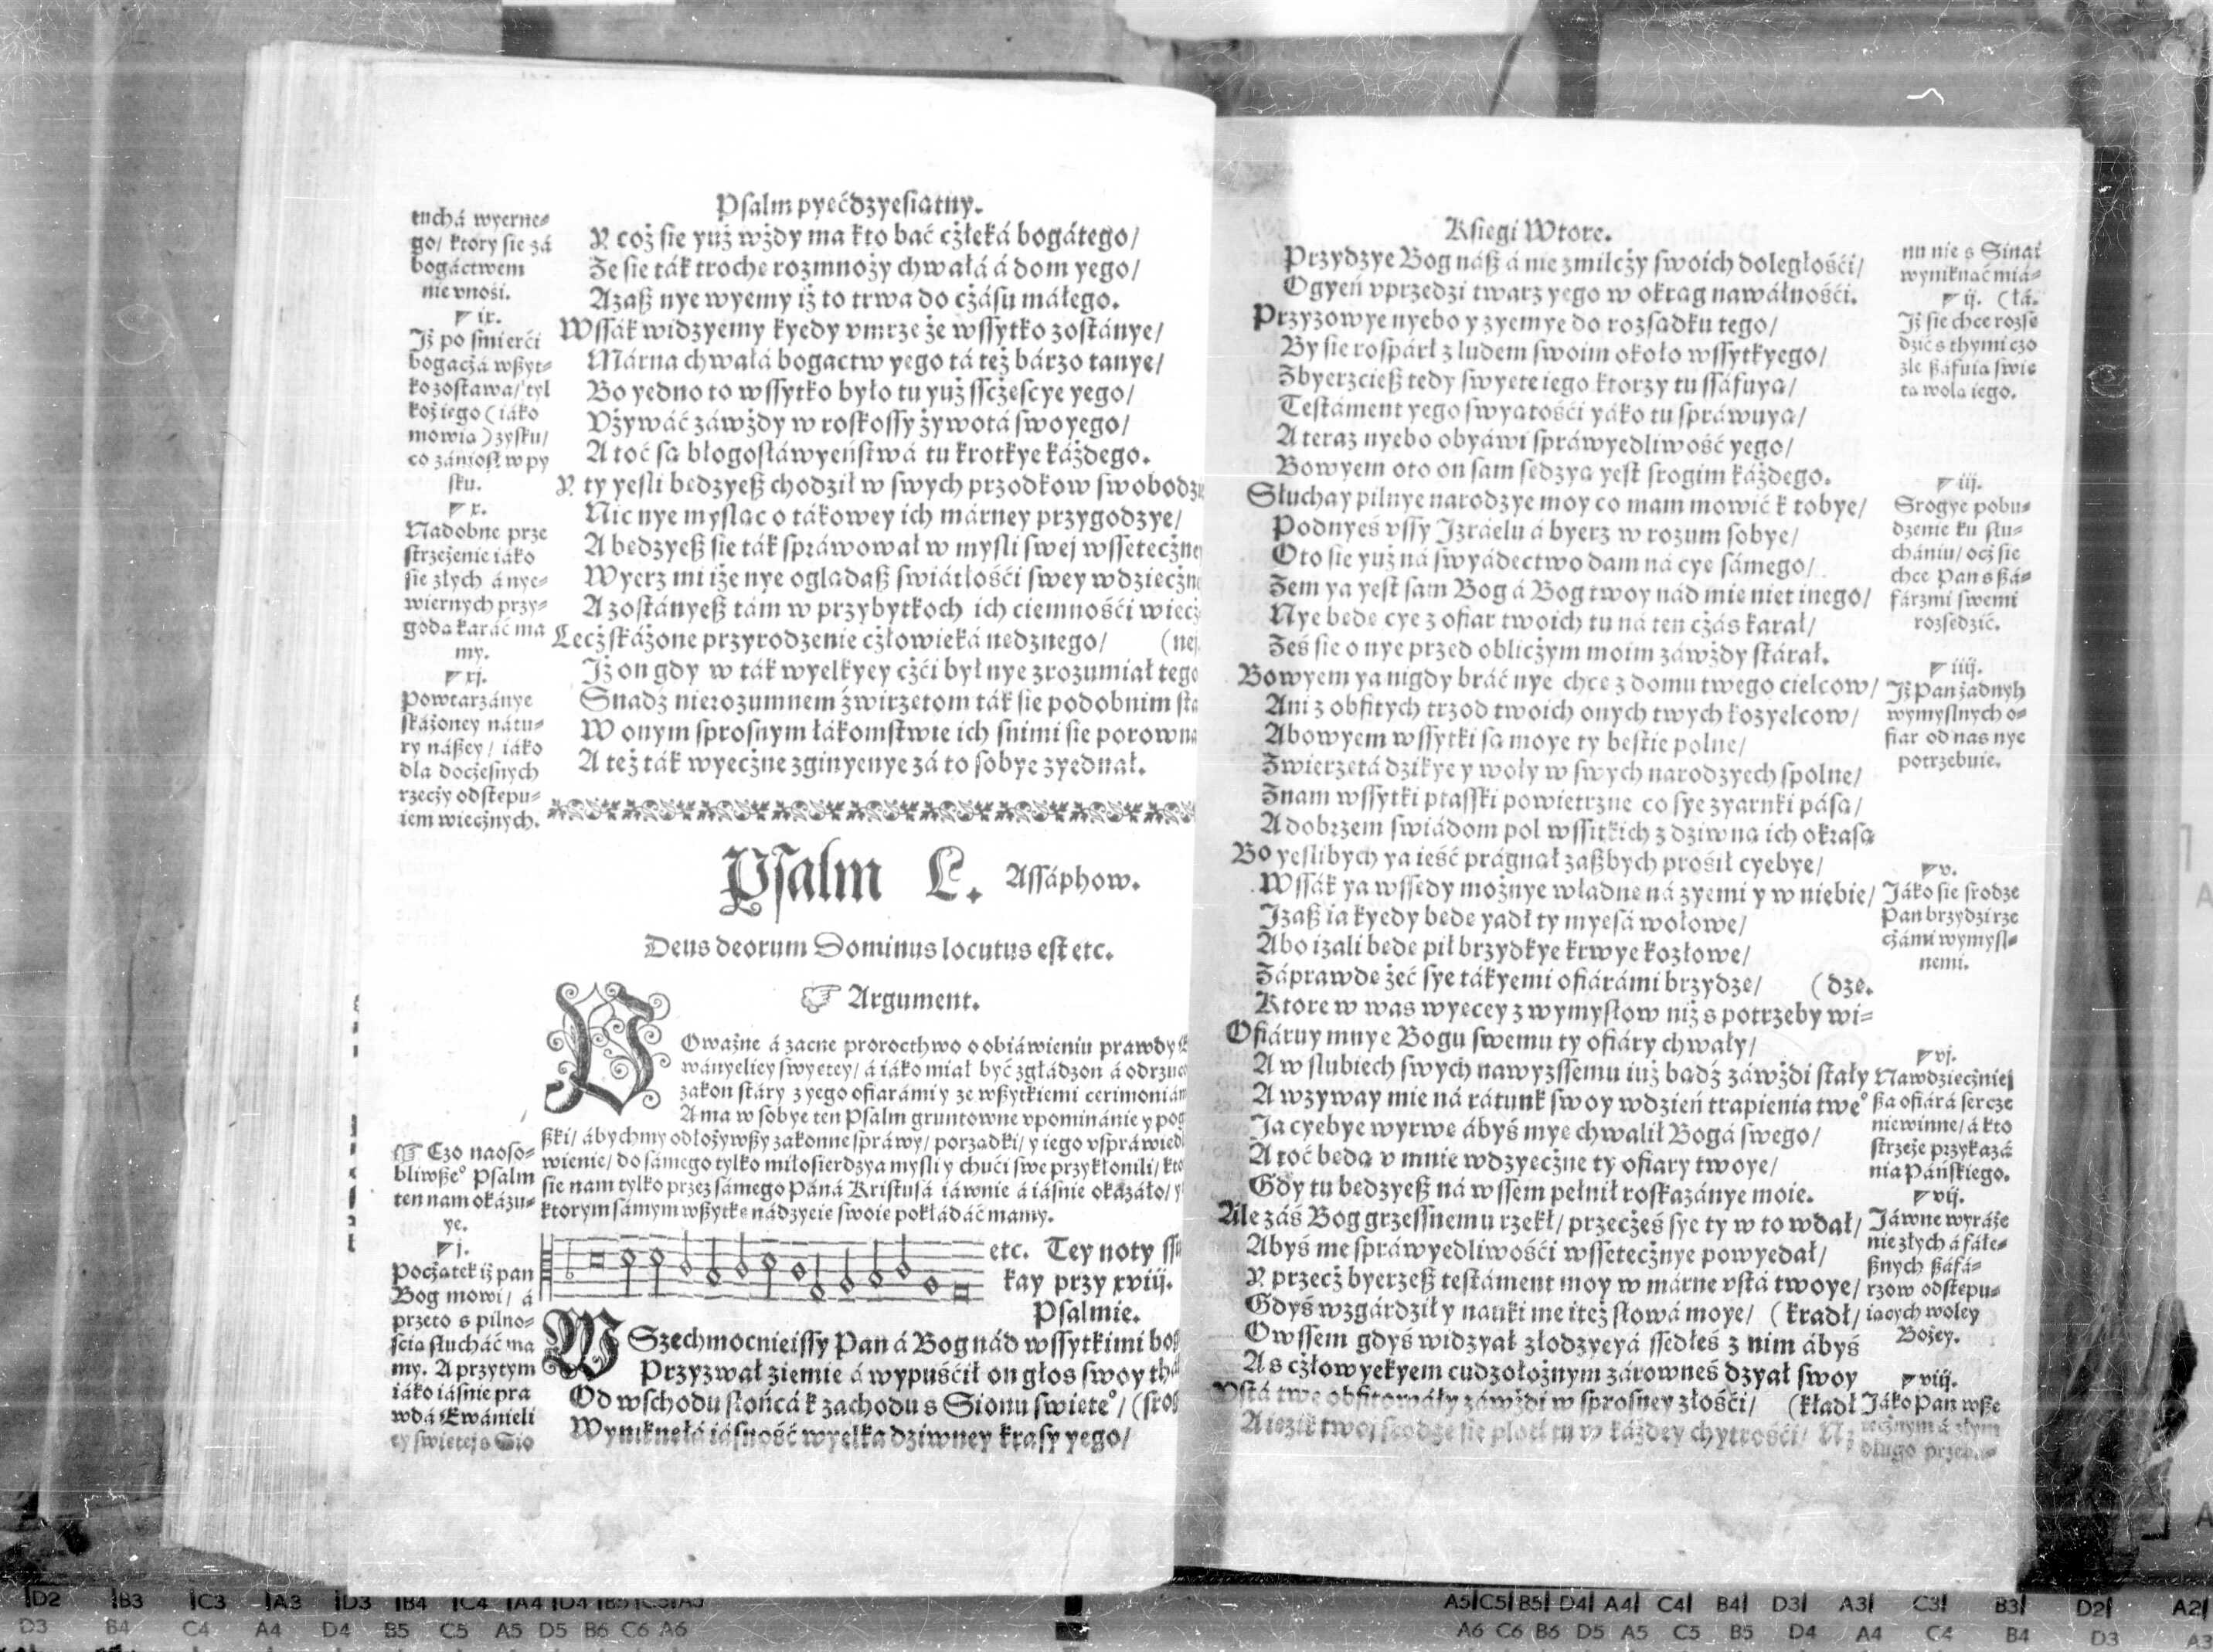 Psalm pyećdzyesiątny.
Y coż sie yuż wżdy ma kto bać cżłeká bogátego/
Że sie ták troche rozmnoży chwałá á dom yego/
Azaß nye wyemy iż to trwa do cżásu máłego.
Wssák widzyemy kyedy vmrze że wssytko zostánye/
Márna chwałá bogactw yego tá też bárzo tanye/
Bo yedno to wssytko było tu yuż sscżescye yego/
Vżywáć záwżdy w roskossy żywotá swoyego/
A toć są błogosłáwyeństwá tu krotkye káżdego.
Y ty yesli będzyeß chodził w swych przodkow
Nic nye mysląc o tákowey ich márney przygodzye/
A będzyeß sie ták spráwował w mysli swej
Wyerz mi iże nye oglądaß swiátłośći swey
A zostányeß tám w przybytkoch ich ciemnośći
Lecż skáżone przyrodzenie cżłowieká nędznego/
Iż on gdy w ták wyelkyey cżći był nye zrozumiał
Snadź nierozumnem źwirzętom ták sie podobnim
W onym sprosnym łákomstwie ich snimi sie
A też ták wyecżne zginyenye zá to sobye zyednał.
tuchá wyerne⸗
go/ ktory sie zá
bogáctwem
nie vnośi.
ix.
Iż po śmierći
bogacżá wßyt⸗
ko zostawa/ tyl
koż iego (iáko
mowią) zysku/
co zániosł w py
sku.
x.
Nadobne prze
strzeżenie iáko
sie złych á nye⸗
wiernych przy⸗
godą karáć ma
my.
xj.
Powtarzánye
skáżoney nátu⸗
ry náßey/ iáko
dla docżesnych
rzecży odstępu⸗
iem wiecżnych.
Psalm L. Assáphow.
Deus deorum Dominus locutus est etc.
Argument.
POważne á zacne proroctwo o obiáwieniu prawdy
wányeliey swyętey/ á iáko miał być zgłádzon á
zakon stáry z yego ofiarámi y ze wßytkiemi
A ma w sobye ten Psalm gruntowne vpominánie y
ßki/ ábychmy odłożywßy zakonne spráwy/ porządki/ y iego
wienie/ do sámego tylko miłosierdzya mysli y chući swe przykłonili/
sie nam tylko przez sámego Páná Kristusá iáwnie á iáśnie okazáło/
ktorym sámym wßytkę nádzyeię swoię pokłádáć mamy.
Czo naoso⸗
bliwßeº Psalm
ten nam okázu⸗
ye.
j.
Pocżątek iż pan
Bog mowi/ á
przeto s pilno⸗
ścią słucháć ma
my. A przytym
iáko iásnie pra
wdá Ewánieli
ey swiętej s Sio
etc. Tey noty
kay przy xviij.
Psalmie.
WSzechmocnieissy Pan á Bog nád wssytkimi
Przyzwał ziemię á wypuśćił on głos swoy
Od wschodu słońcá k zachodu s Sionu swięteº/
Wyniknęłá iásność wyelka dziwney krásy yego/
Księgi Wtore.
Przydzye Bog náß á nie zmilcży swoich doległośći/
Ogyeń vprzedzi twarz yego w okrąg nawáłnośći.
Przyzowye nyebo y zyemyę do rozsądku tego/
By sie rospárł z ludem swoim około wssytkyego/
Zbyerzcież tedy swyęte iego ktorzy tu ssáfuyą/
Testáment yego swyątośći yáko tu spráwuyą/
A teraz nyebo obyáwi spráwyedliwość yego/
Bowyem oto on sam sędzyą yest srogim káżdego.
Słuchay pilnye narodzye moy co mam mowić k tobye/
Podnyeś vssy Izráelu á byerz w rozum sobye/
Oto sie yuż ná swyádectwo dam ná cyę sámego/
Żem ya yest sam Bog á Bog twoy nád mię niet inego/
Nye będę cye z ofiar twoich tu ná ten cżás karał/
Żeś sie o nye przed oblicżym moim záwżdy stárał.
Bowyem ya nigdy bráć nye chcę z domu twego cielcow/
Ani z obfitych trzod twoich onych twych kozyelcow/
Abowyem wssytki są moye ty bestie polne/
Zwierzętá dzikye y woły w swych narodzyech spolne/
Znam wssytki ptasski powietrzne co sye zyarnki pásą/
A dobrzem swiádom pol wssitkich z dziwną ich okrasą
Bo yeslibych ya ieść prágnął zaßbych prośił cyebye/
Wssák ya wssędy możnye władnę ná zyemi y w niebie/
Izaß ia kyedy będę yadł ty myęsá wołowe/
Abo izali będę pił brzydkye krwye kozłowe/
Záprawdę żeć sye tákyemi ofiárámi brzydzę/
(dzę.
Ktore w was wyęcey z wymysłow niż s potrzeby wi⸗
Ofiáruy mnye Bogu swemu ty ofiáry chwały/
A w slubiech swych nawyzssemu iuż bądź záwżdi stały
A wzyway mię ná rátunk swoy w dzień trapienia tweº
Ja cyebye wyrwę ábyś mye chwalił Bogá swego/
A toć będą v mnie wdzyęcżne ty ofiary twoye/
Gdy tu będzyeß ná wssem pełnił roskazánye moie.
Ale záś Bog grzessnemu rzekł/ przecżeś sye ty w to wdał/
Abyś mę spráwyedliwośći wssetecżnye powyedał/
Y przecż byerzeß testáment moy w márne vstá twoye/
Gdyś wzgárdził y nauki me też słowá moye/ (kradł/
Owssem gdyś widzyał złodzyeyá ssedłeś z nim ábyś
A s cżłowyekyem cudzołożnym zárowneś dzyał swoy
Vstá twe obfitowáły záwżdi w sprosney złośći/ (kładł
A ięzik twoj srodze sie plotł tu w káżdey chytrośći/
nu nie s Sinai
wyniknąć miá⸗
ij. (łá.
Iż sie chce rozsę
dzić s thymi czo
źle ßáfuią świę
tą wolą iego.
iij.
Srogye pobu⸗
dzenie ku słu⸗
chániu/ ocż sie
chce Pan s ßá⸗
fárzmi swemi
rozsędzić.
iiij.
Iż Pan żadnyh
wymyslnych o⸗
fiar od nas nye
potrzebuie.
v.
Jáko sie srodze
Pan brzydzi rze
cżámi wymysl⸗
nemi.
vj.
Nawdzięcżniej
ßa ofiárá serce
niewinne/ á kto
strzeże przykazá
nia Páńskiego.
vij.
Jáwne wyráże
nie złych á fałe⸗
ßnych ßáfá⸗
rzow odstępu⸗
iących woley
Bożey.
viij.
Jáko Pan wße
tecżnym á złym
długo
D2 B3 C3 A3 D3 B4 C4 A4 D4 B5 C5 A5
D3 B4 C4 A4 D4 B5 C5 A5 D5 B6 C6 A6
A5 C5 B5 D4 A4 C4 B4 D3 A3 C3 B3 D2 A2
A6 C6 B6 D5 A5 C5 B5 D4 A4 C4 B4 D3 A3